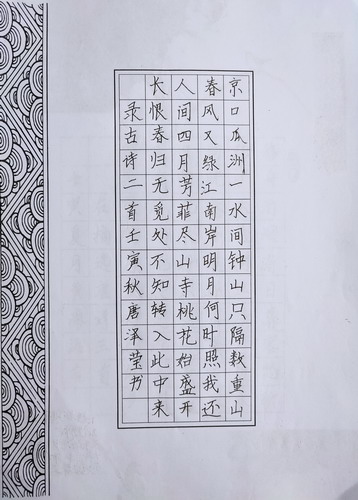 京口瓜洲一水间钟山只隔数重山
春风又绿江南岸明月何时照我还
人间四月芳菲尽山寺桃花始盛开
长恨春归无觅处不知转入此中来
录古诗二首壬寅秋唐泽莹书